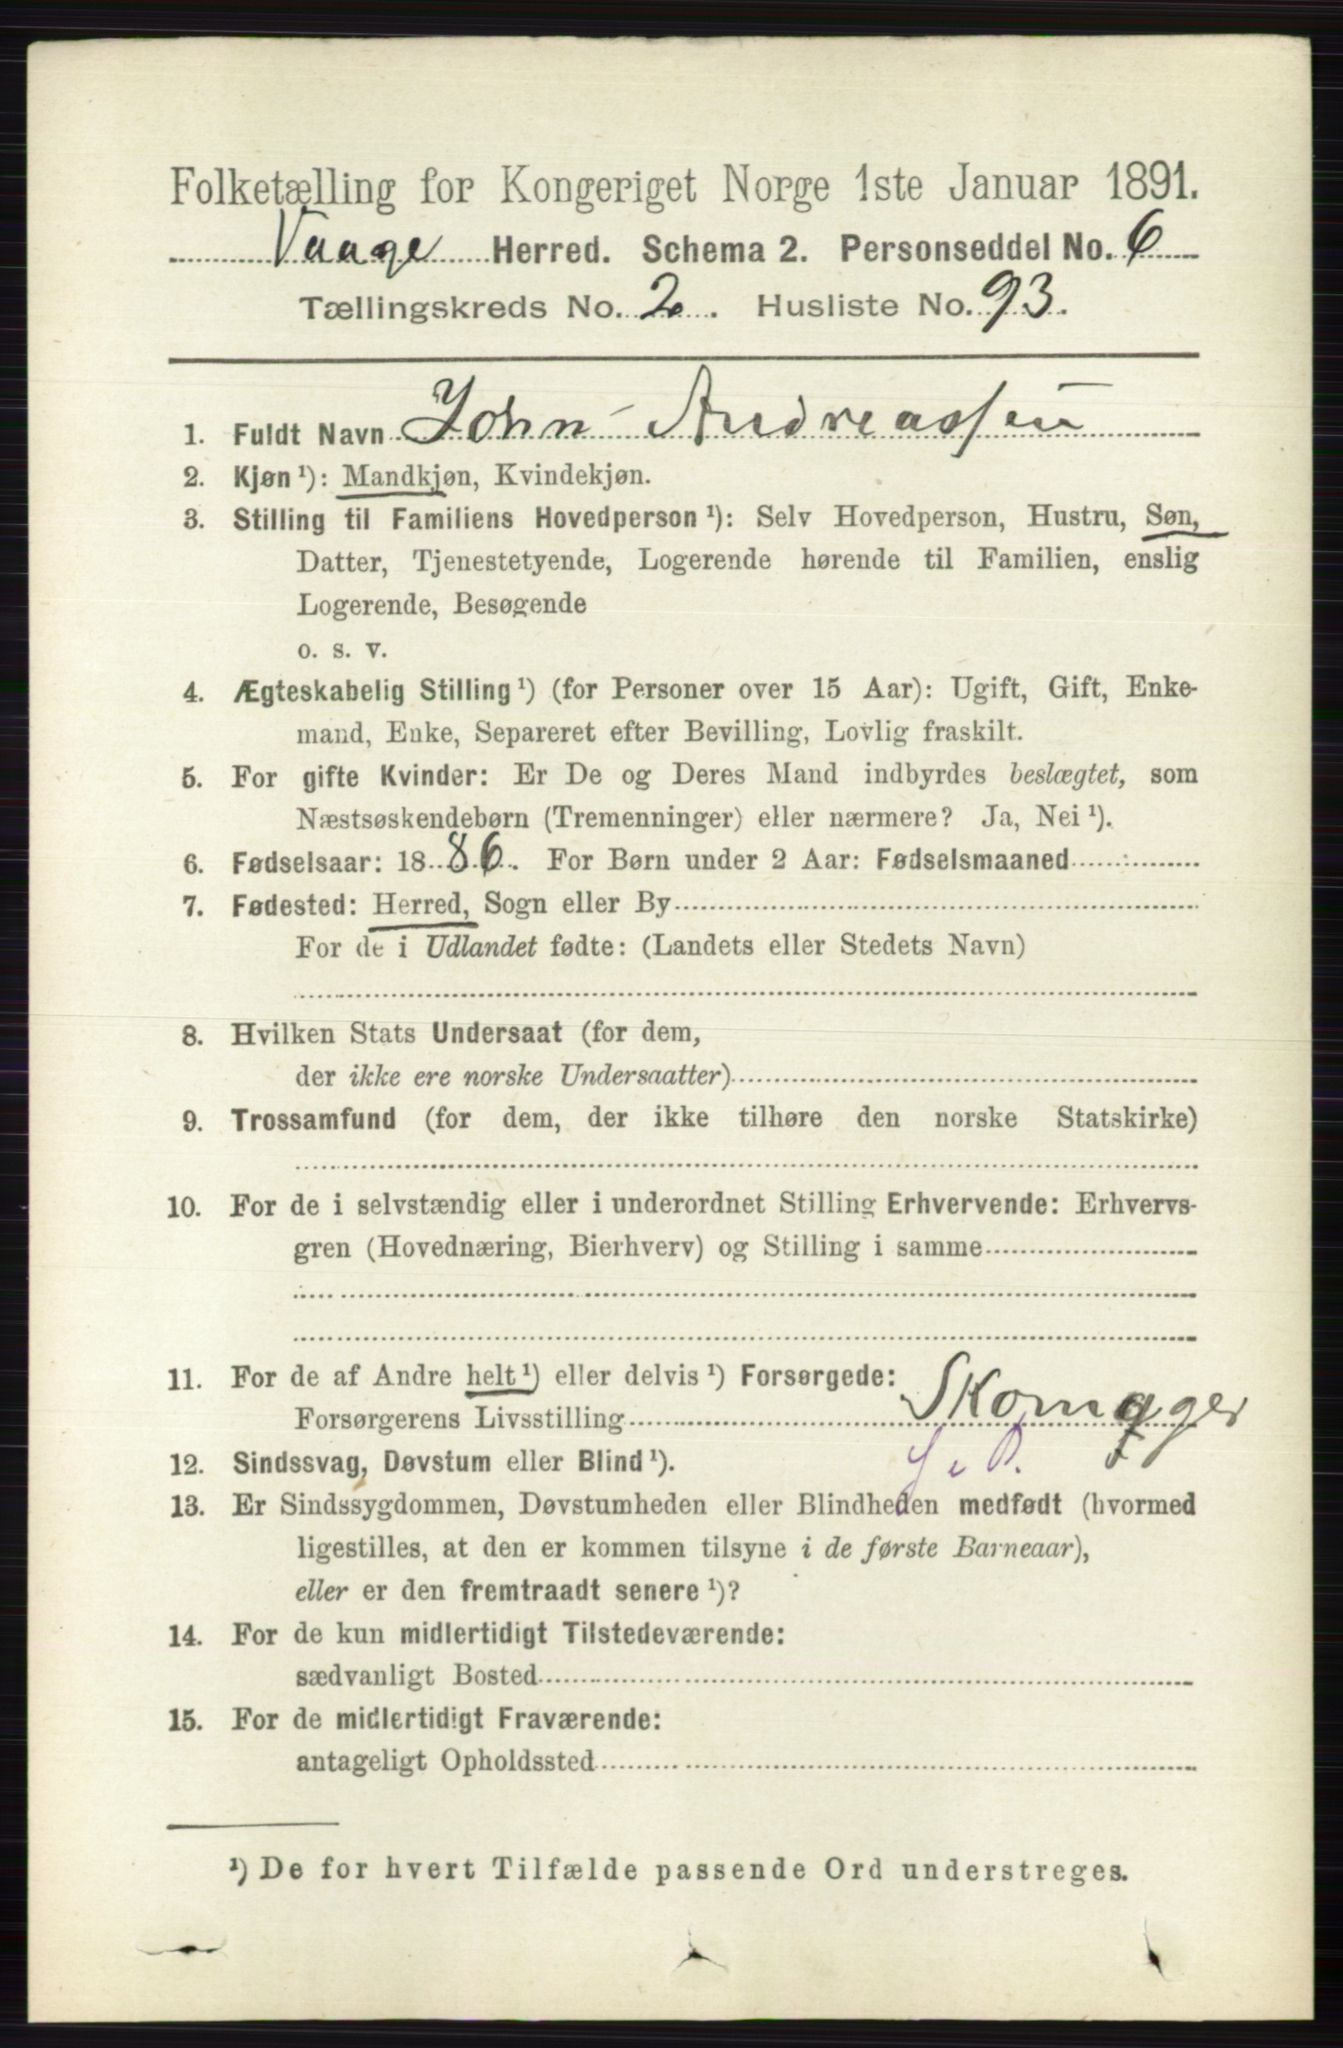 Folketælling for Kongeriget Norge 1ste Januar 1891.
Vaage Herred. Schema 2. Personseddel No. 6
Tællingskreds No. 2. Husliste No. 93.
1. Fuldt Navn John Andreassen
2. Kjøn ¹): Mandkjøn, Kvindekjøn.
3. Stilling til Familiens Hovedperson ¹): Selv Hovedperson, Hustru, Søn,
Datter, Tjenestetyende, Logerende hørende til Familien, enslig
Logerende, Besøgende
o. s. v.
4. Ægteskabelig Stilling ¹) (for Personer over 15 Aar): Ugift, Gift, Enke-
mand, Enke, Separeret efter Bevilling, Lovlig fraskilt.
5. For gifte Kvinder: Er De og Deres Mand indbyrdes beslægtet, som
Næstsøskendebørn (Tremenninger) eller nærmere? Ja, Nei ¹).
6. Fødselsaar: 1886. For Børn under 2 Aar: Fødselsmaaned
7. Fødested: Herred, Sogn eller By
For de i Udlandet fødte: (Landets eller Stedets Navn)
8. Hvilken Stats Undersaat (for dem,
der ikke ere norske Undersaatter)
9. Trossamfund (for dem, der ikke tilhøre den norske Statskirke)
10. For de i selvstændig eller i underordnet Stilling Erhvervende: Erhvervs-
gren (Hovednæring, Bierhverv) og Stilling i samme
11. For de af Andre helt ¹) eller delvis ¹) Forsørgede:
Forsørgerens Livsstilling Skomager
12. Sindssvag, Døvstum eller Blind ¹).
13. Er Sindssygdommen, Døvstumheden eller Blindheden medfødt (hvormed
ligestilles, at den er kommen tilsyne i de første Barneaar),
eller er den fremtraadt senere ¹)?
14. For de kun midlertidigt Tilstedeværende:
sædvanligt Bosted
15. For de midlertidigt Fraværende:
antageligt Opholdssted
¹) De for hvert Tilfælde passende Ord understreges.